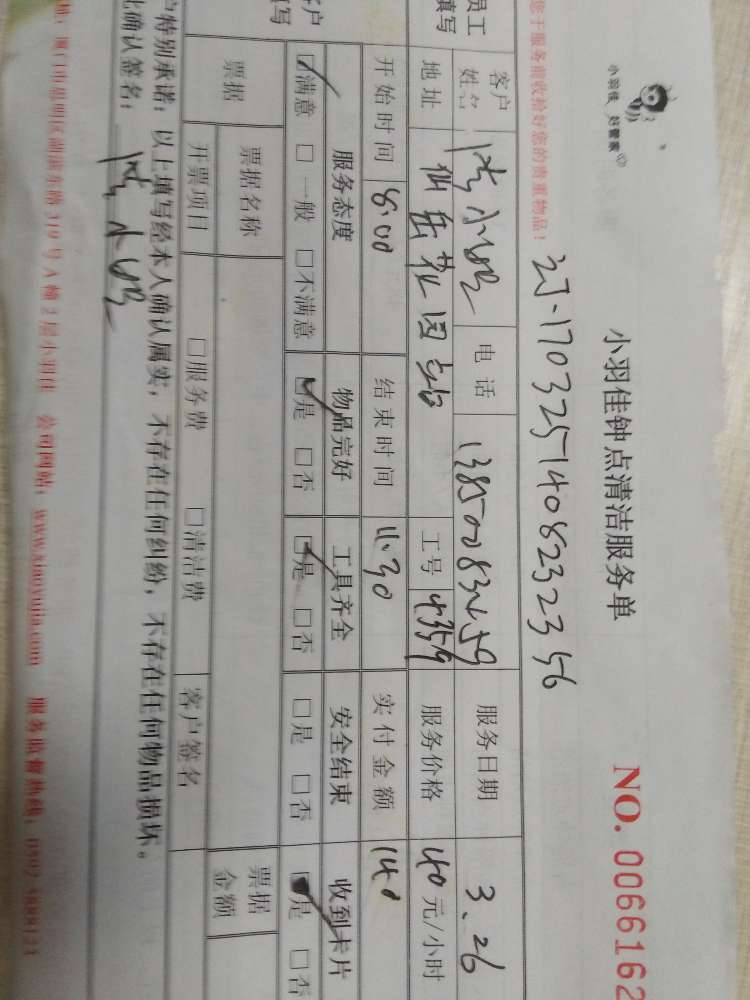 小羽佳 好管家
小羽佳钟点清洁服务单
NO. 0066162
您于服务前收拾好您的贵重物品！
XJ-1703251408232356
员工
填写
客户
姓名
电话 13850083459
服务日期 3.26
地址 仙岳花园
工号 4359
服务价格 40元/小时
开始时间 8:00 结束时间 11:30 实付金额 140
客户
填写
服务态度 物品完好 工具齐全 安全结束 收到卡片
☑满意 □一般 □不满意 ☑是 □否 ☑是 □否 □是 □否 ☑是 □否
票据 票据名称 票据
金额
开票项目 □服务费 □清洁费 客户签名
户特别承诺：以上填写经本人确认属实，不存在任何纠纷，不存在任何物品损坏。
此确认签名：
地址：厦门市思明区湖滨东路319号A幢2层小羽佳 公司网站：www.xiaoyujia.com 服务监督热线：0592-